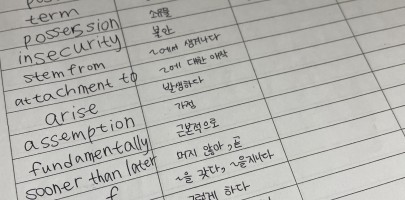 term
possession 소유물
insecurity 불안
stem from ~에서 생겨나다
attachment to ~에 대한 애착
arise 발생하다
assemption 가정
fundamentally 근본적으로
sooner than later 머지 않아,
~을 갖다, ~을지니다
f 하다